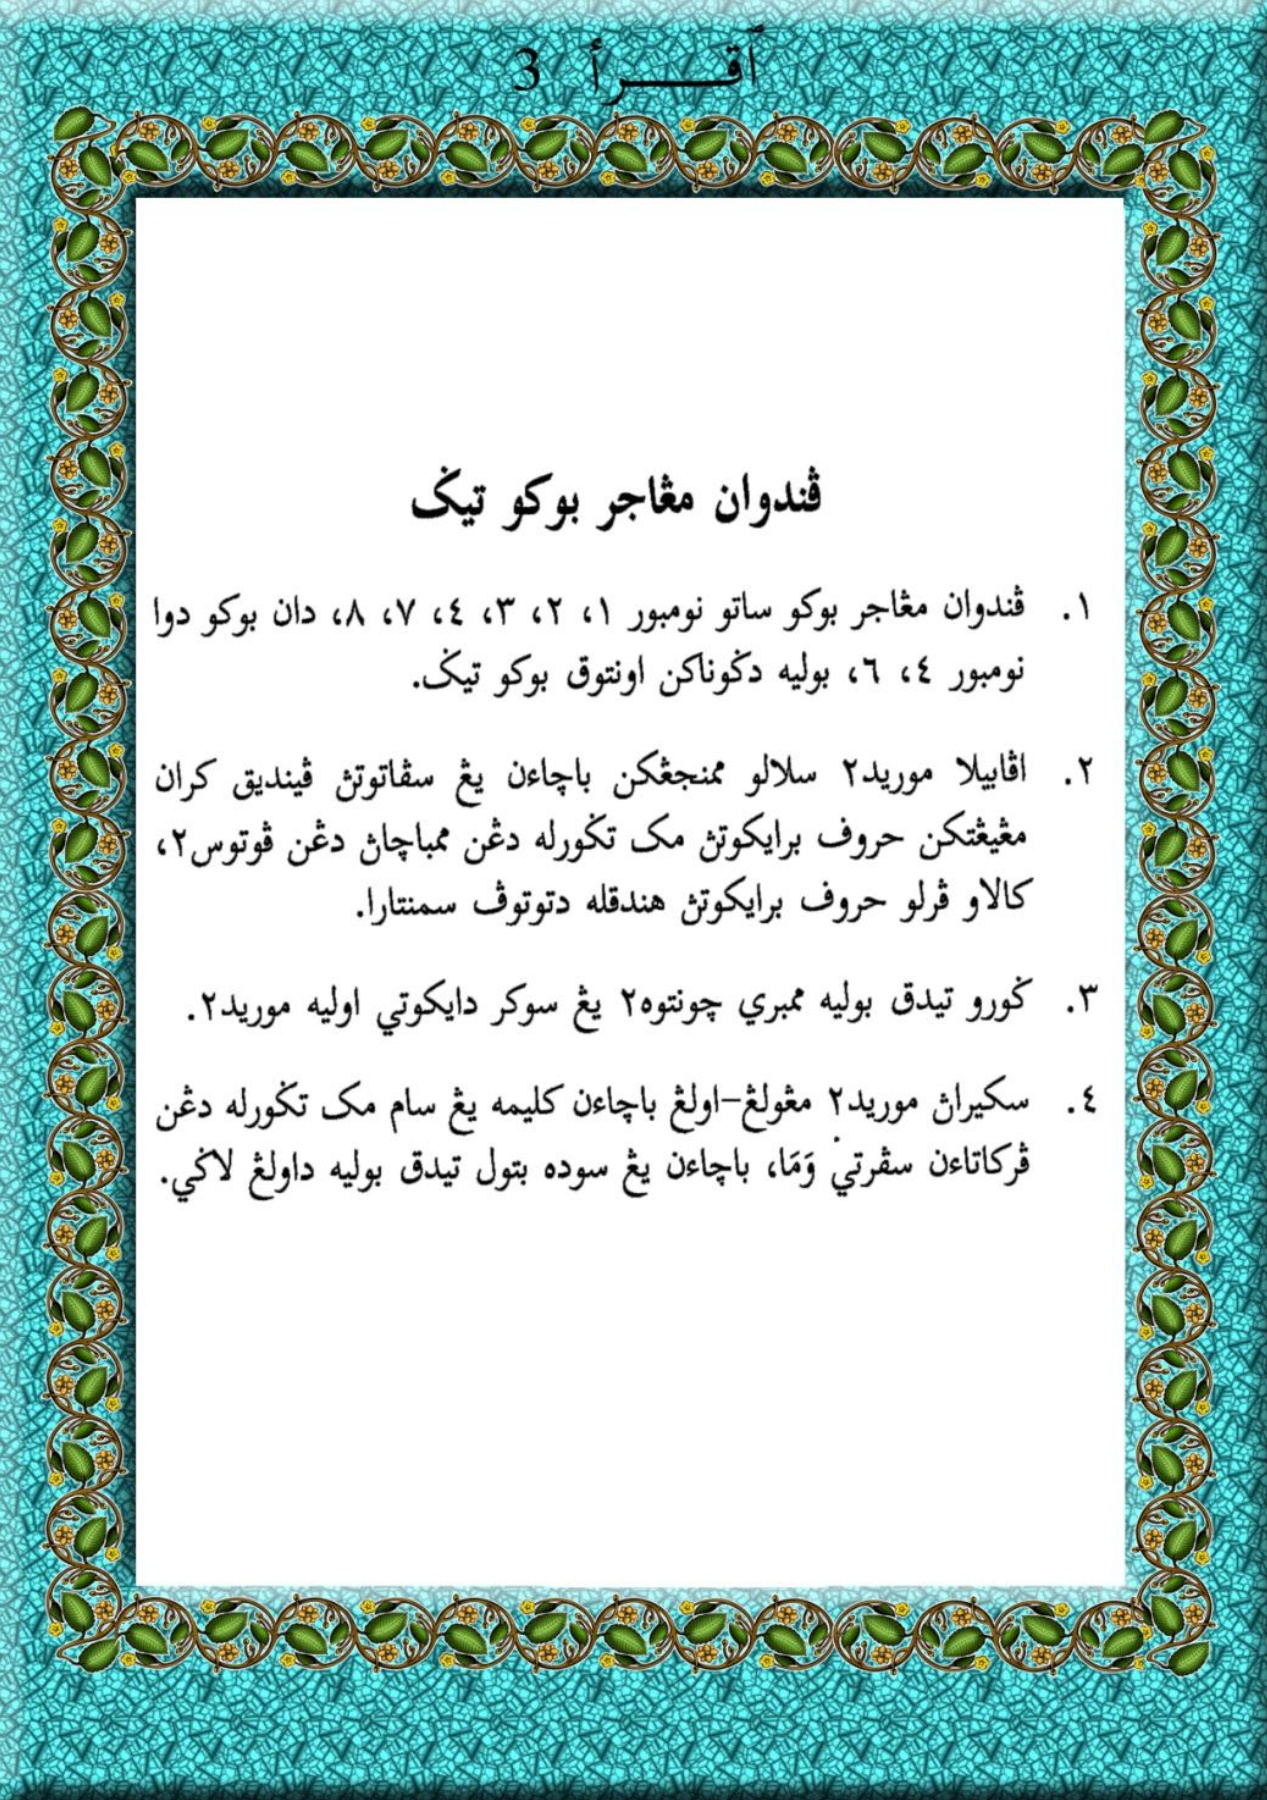 ٱقـــرأ 3
ڤندوان مڠاجر بوکو تيݢ
١. ڤندوان مڠاجر بوکو ساتو نومبور ١، ٢، ٣، ٤، ٧، ٨، دان بوکو دوا
نومبور ٤، ٦، بوليه دݢوناکن اونتوق بوکو تيݢ.
٢. اڤابيلا موريد٢ سلالو ممنجڠکن باچاءن يڠ سڤاتوتڽ ڤينديق کران
مڠيڠتکن حروف برايکوتڽ مک تݢورله دڠن ممباچاڽ دڠن ڤوتوس٢،
کالاو ڤرلو حروف برايکوتڽ هندقله دتوتوڤ سمنتارا.
٣. ݢورو تيدق بوليه ممبري چونتوه٢ يڠ سوکر دايکوتي اوليه موريد٢.
٤. سکيراڽ موريد٢ مڠولڠ–اولڠ باچاءن کليمه يڠ سام مک تݢورله دڠن
ڤرکاتاءن سڤرتي وَمَا، باچاءن يڠ سوده بتول تيدق بوليه داولڠ لاݢي.